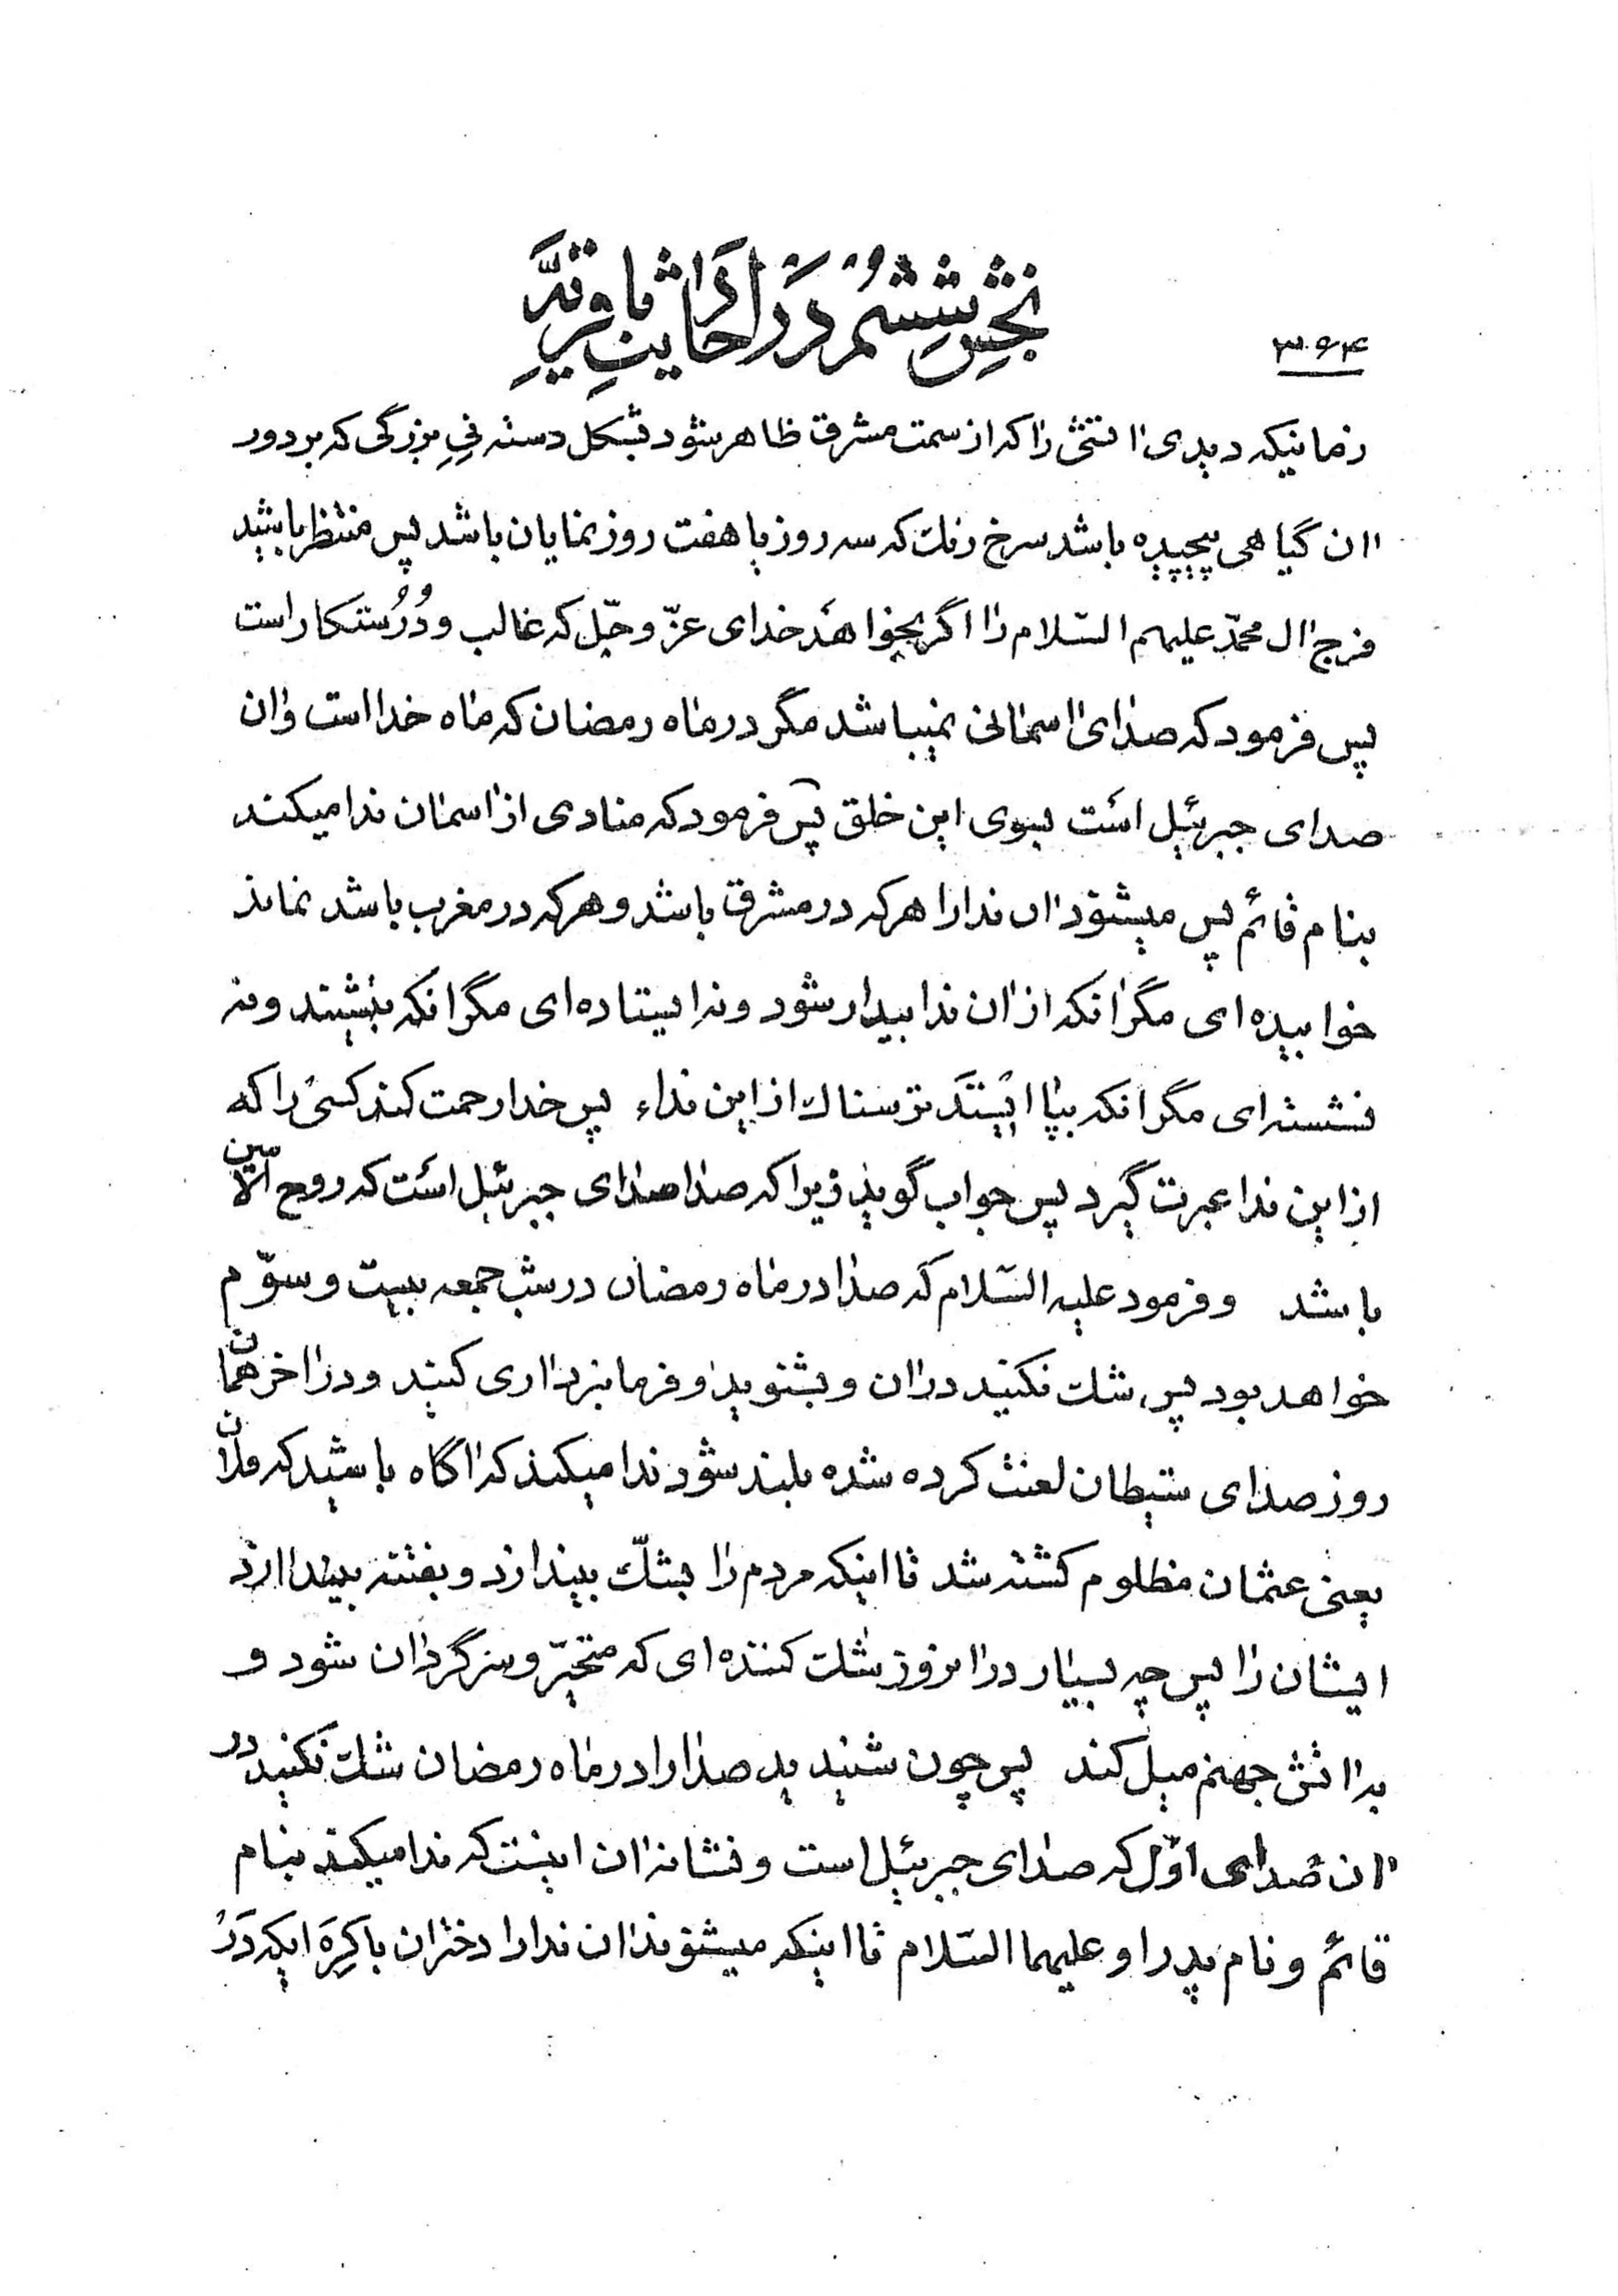 بخش ششم در احادیث باقریّه
۳۶۴
زمانیکه دیدی اتشی را که از سمت مشرق ظاهر شود بشکل دسته نیِ بزرگی که بر دور
ان گیاهی پیچیده باشد سرخ رنک که سه روز یا هفت روز نمایان باشد پس منتظر باشید
فرج ال محمّد علیهم السّلام را اگر بخواهد خدای عزّ و جّل که غالب و دُرُستکار است
پس فرمود که صدای اسمانی نمیباشد مگر در ماه رمضان که ماه خدا است و ان
صدای جبرئیل است بسوی این خلق پس فرمود که منادی از اسمان ندا میکند
بنام قائم پس میشنود ان ندا را هر که در مشرق باشد و هر که در مغرب باشد نماند
خوابیده ای مگر انکه از ان ندا بیدار شود و نه ایستاده ای مگر انکه بنشیند و نه
نشسته ای مگر انکه بپا ایستد ترسناک از این نداء پس خدا رحمت کند کسی را که
از این ندا عبرت گیرد پس جواب گوید زیرا که صدا صدای جبرئیل است که روح الامین
باشد و فرمود علیه السّلام که صدا در ماه رمضان در شب جمعه بیست و سوّم
خواهد بود پس شک نکنید در ان و بشنوید و فرمانبرداری کنید و در اخر همان
روز صدای شیطان لعنت کرده شده بلند شود ندا میکند که اگاه باشید که فلان
یعنی عثمان مظلوم کشته شد تا اینکه مردم را بشکّ بیندازد و بفتنه بیندازد
ایشان را پس چه بسیار در انروز شک کننده ای که متحیّر و سرگردان شود و
به اتش جهنم میل کند پس چون شنیدید صدا را در ماه رمضان شک نکنید در
ان صدای اوّل که صدای جبرئیل است و نشانه ان اینست که ندا میکند بنام
قائم و نام پدر او علیهما السّلام تا اینکه میشنوند ان ندا را دختران باکِرَه ایکه دَر